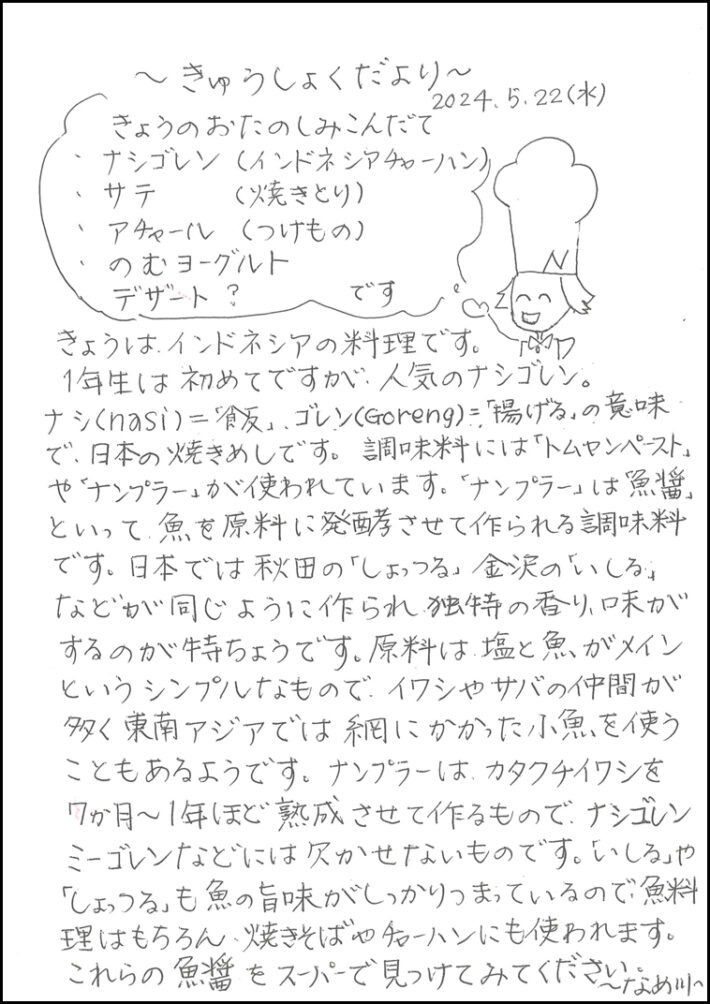 ～きゅうしょくだより～
2024.5.22(水)
きょうのおたのしみこんだて
・ナシゴレン(インドネシアチャーハン)
・サテ (焼きとり)
・アチャール (つけもの)
・のむヨーグルト
デザート? です
きょうは、インドネシアの料理です。
1年生は初めてですが、人気のナシゴレン。
ナシ(nasi)=「飯」、ゴレン(Goreng)=「揚げる」の意味
で、日本の焼きめしです。調味料には「トムヤンペースト」
や「ナンプラー」が使われています。「ナンプラー」は「魚醬」
といって、魚を原料に発酵させて作られる調味料
です。日本では秋田の「しょっつる」金沢の「いしる」
などが同じように作られ、独特の香り、味が
するのが特ちょうです。原料は塩と魚、がメイン
というシンプルなもので、イワシやサバの仲間が
多く東南アジアでは網にかかった小魚を使う
こともあるようです。ナンプラーは、カタクチイワシを
7か月～1年ほど熟成させて作るもので、ナシゴレン
ミーゴレンなどには欠かせないものです。「いしる」や
「しょっつる」も魚の旨味がしっかりつまっているので、魚料
理はもちろん、焼きそばやチャーハンにも使われます。
これらの魚醬をスーパーで見つけてみてください。
～なめ川～